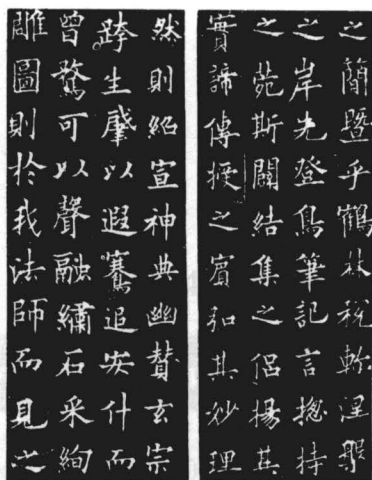 之簡暨乎鶴林稅軫涅槃
之岸先登鳥筆記言摠持
之苑斯闢結集之侶揚其
實諦傳授之賓弘其妙理
然則紹宣神典幽贊玄宗
跨生肇以遐騫追安什而
曾騖可以聲融繡石采絢
雕圖則於我法師而見之